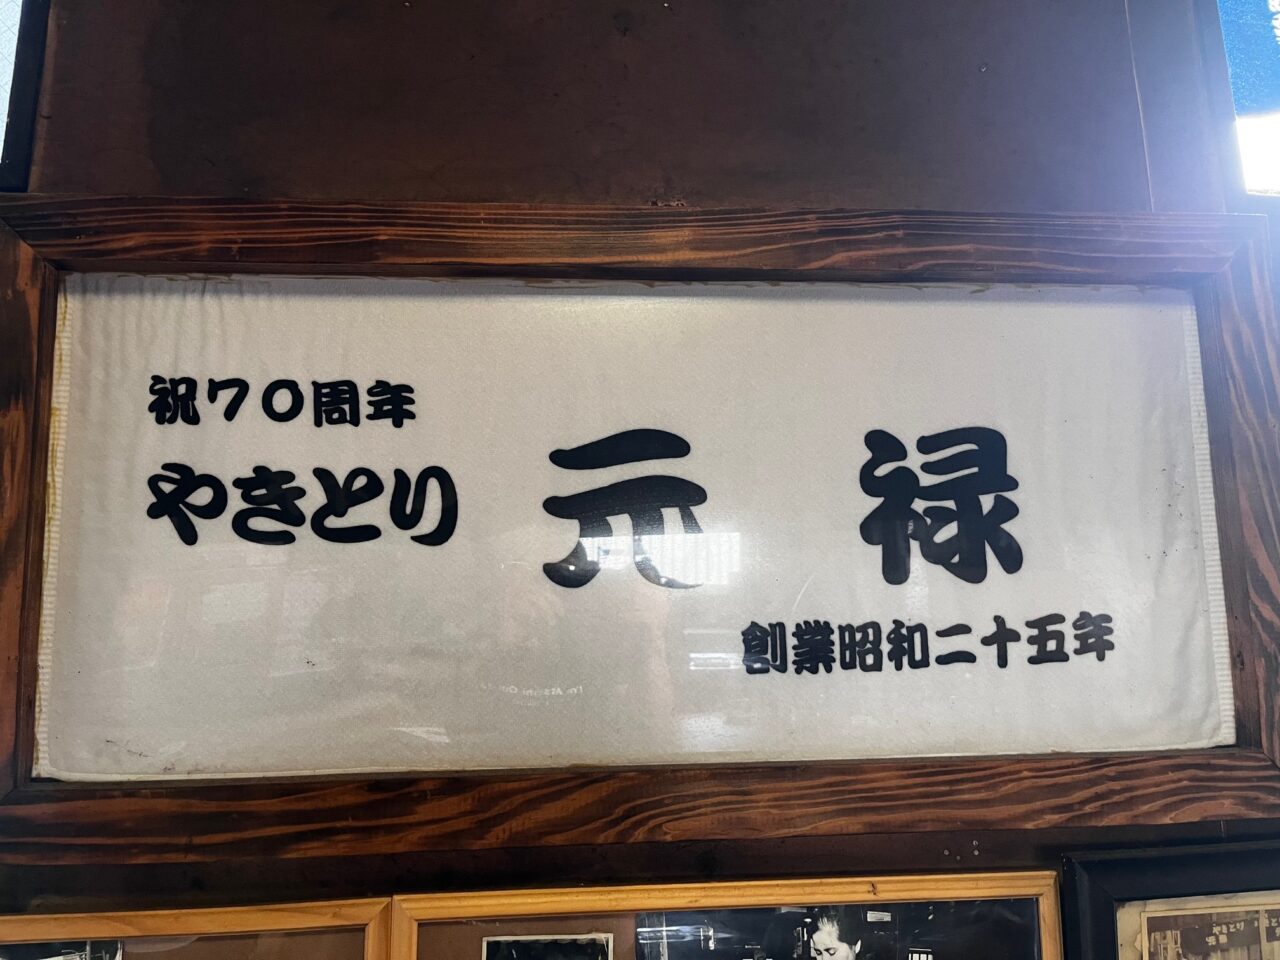 祝70周年
やきとり 元禄
創業昭和二十五年